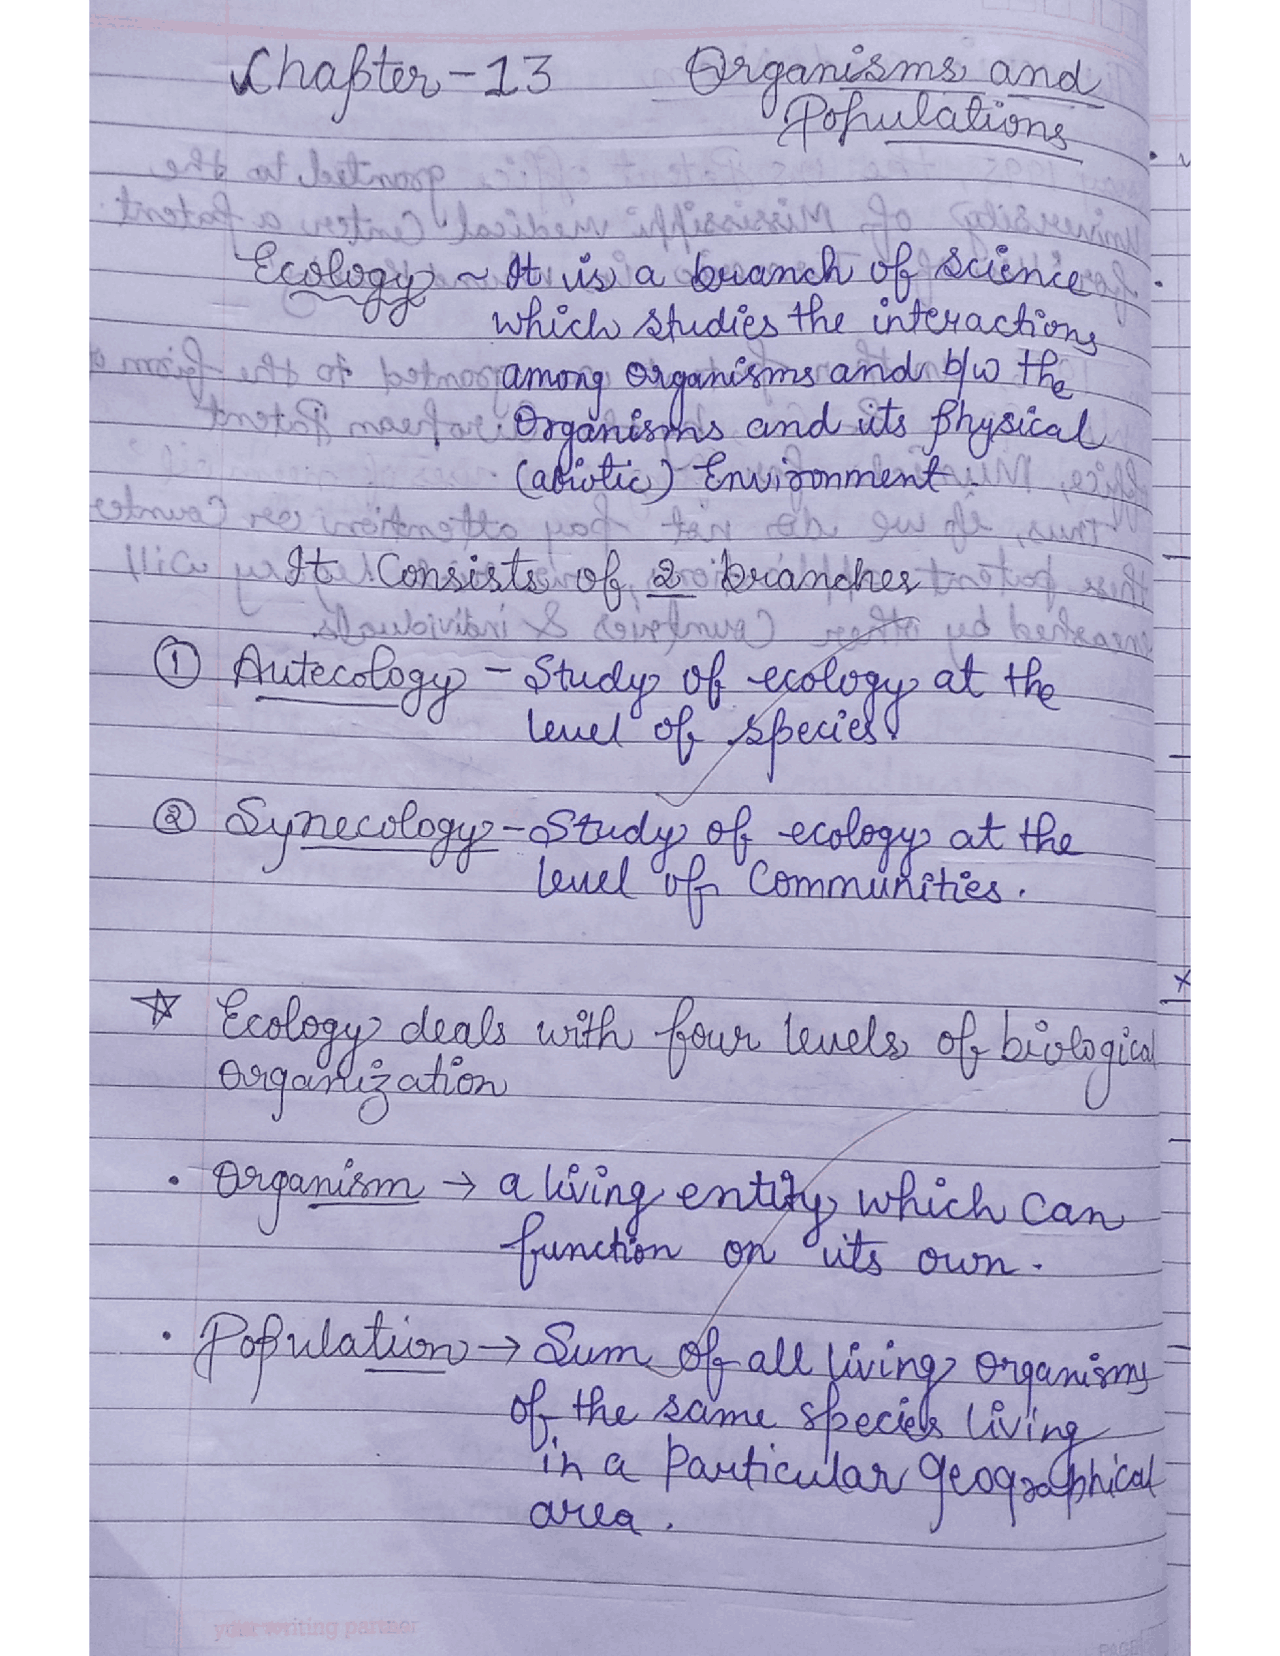 Chapter-13 Organisms and
Populations
Ecology ~ It is a branch of science
which studies the interactions
among organisms and b/w the
Organisms and its physical
(abiotic) Environment.
It Consists of 2 branches
① Autecology - Study of ecology at the
level of species.
② Synecology - Study of ecology at the
level of Communities.
☆ Ecology deals with four levels of biological
organization
• Organism → a living entity which can
function on its own.
• Population → Sum of all living organisms
of the same species living
in a Particular geographical
area.
your writing partner
PAGE